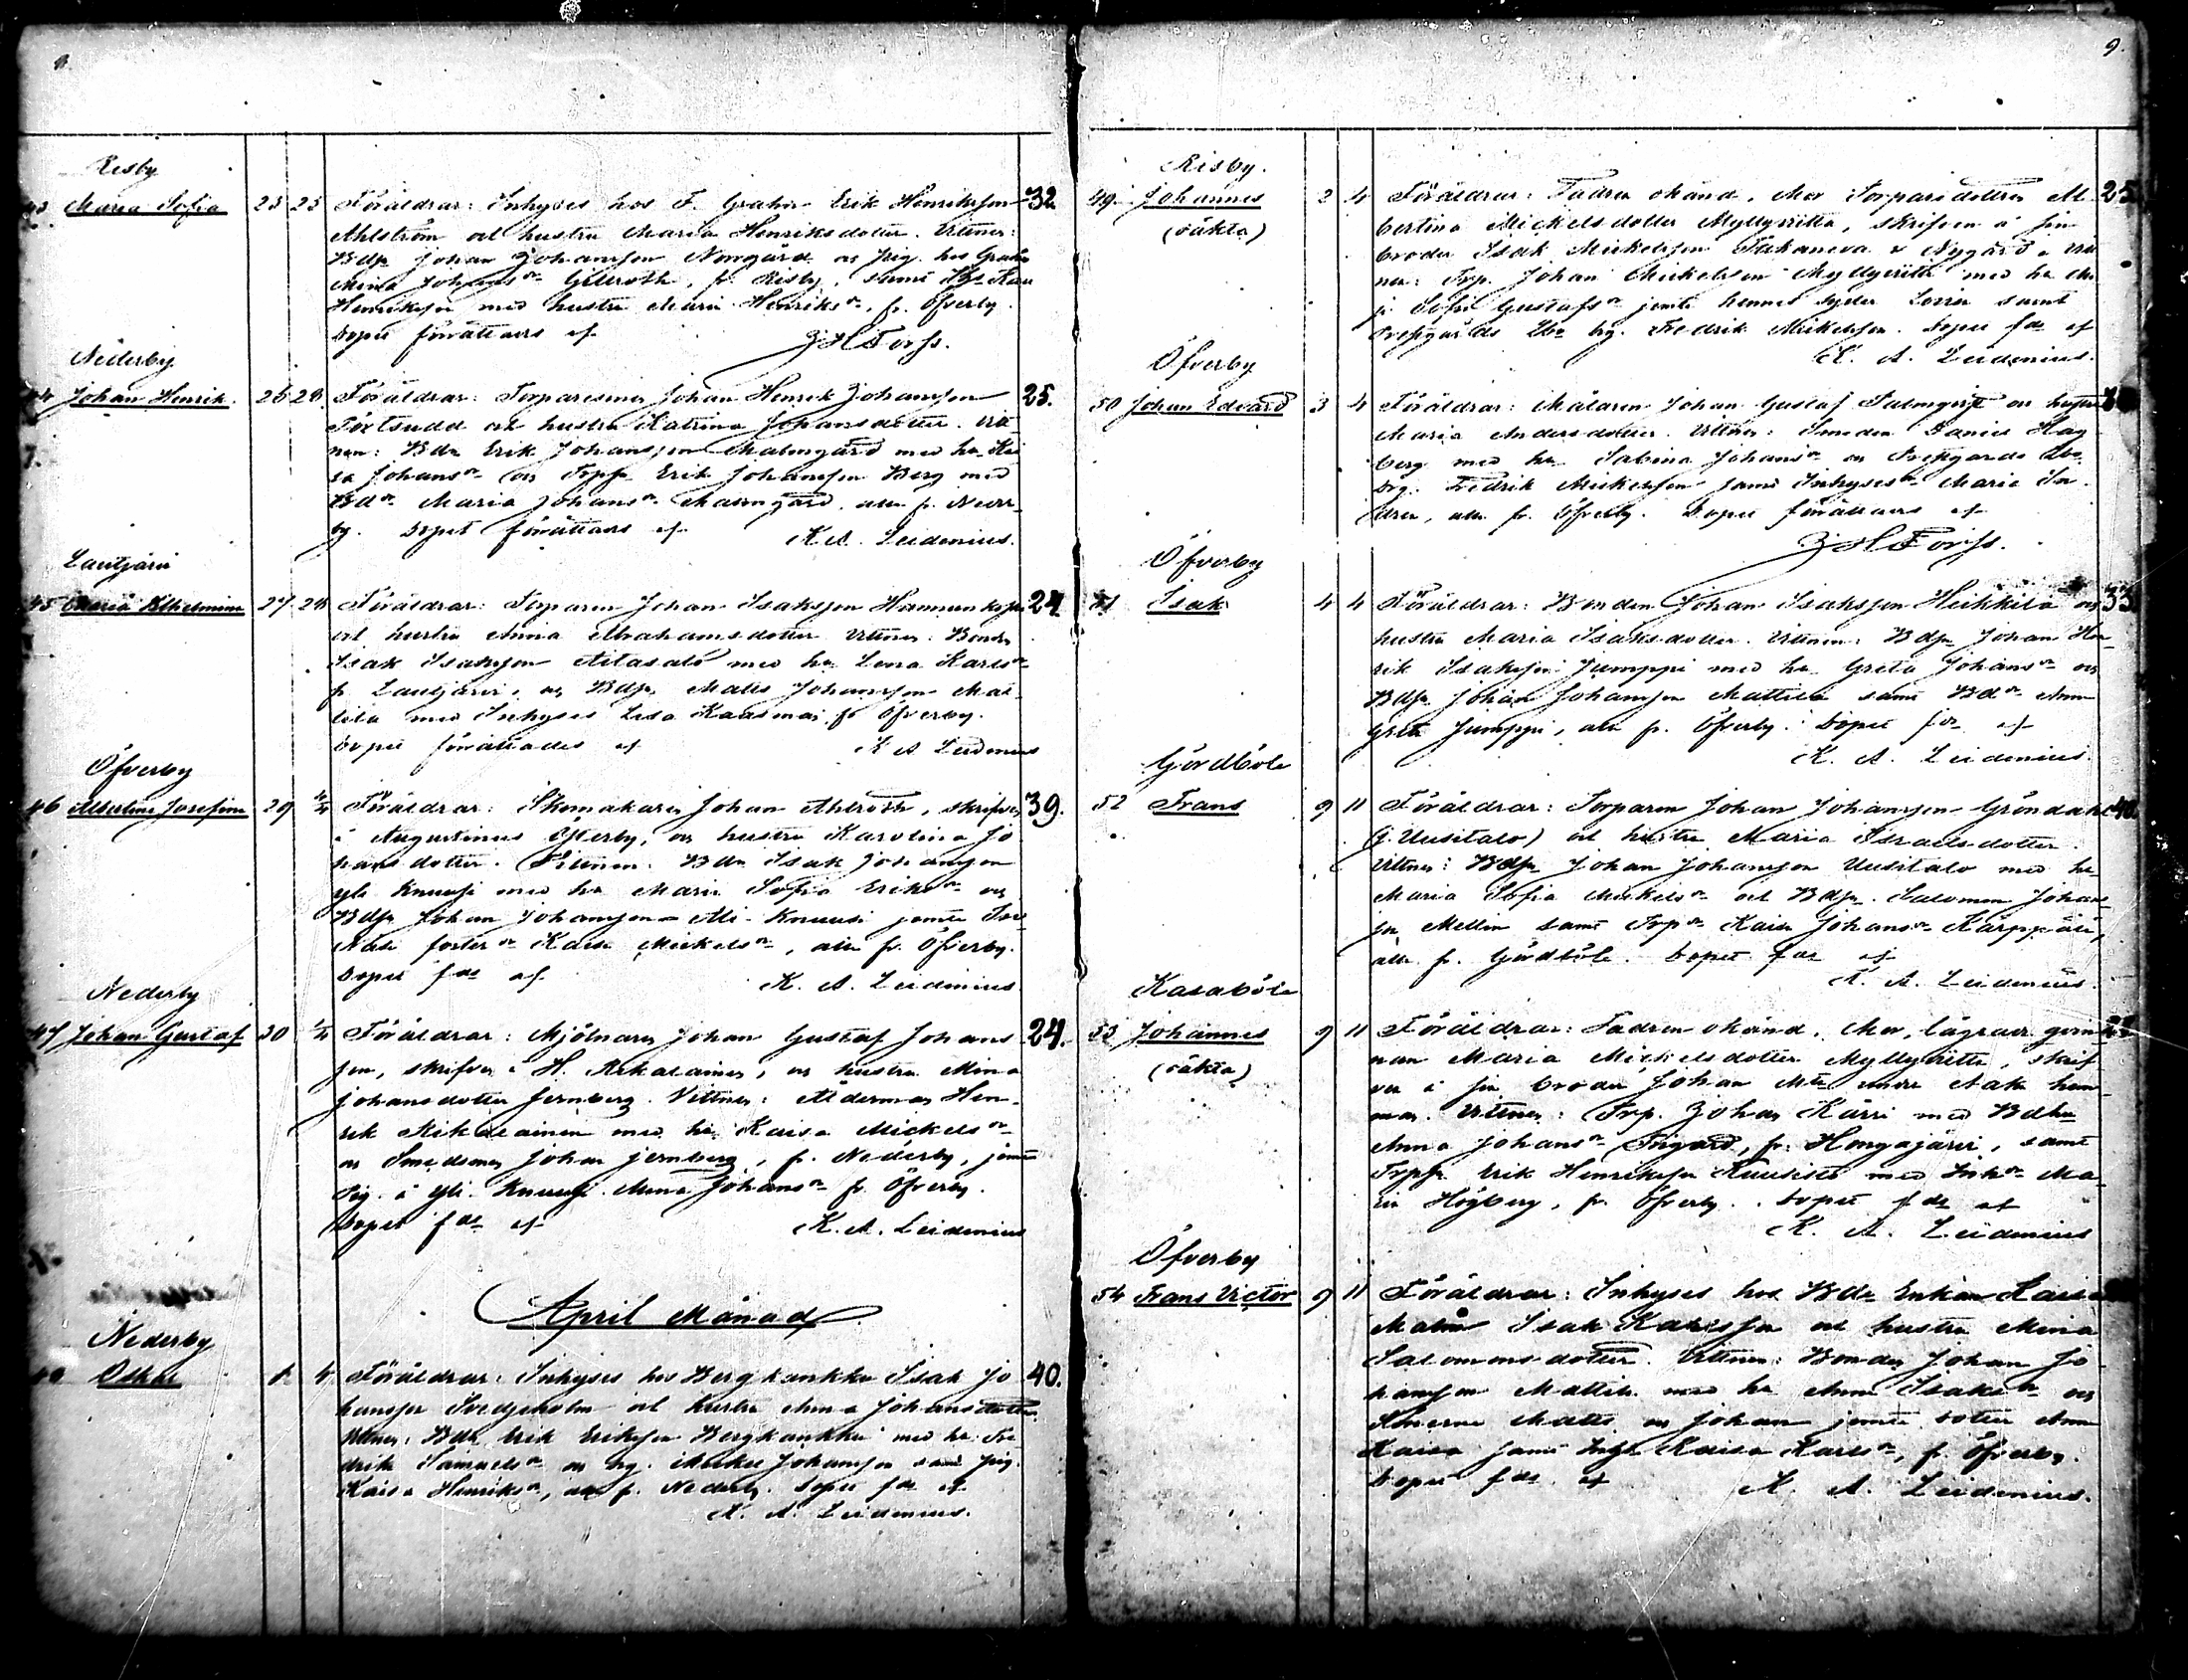 8.
Risby
43 Maria Sofia 23 25 Föräldrar: Inhyses hos F. Grahn Erik Henriksson 32
Ahlström och hustru Maria Henriksdotter. Vittnen:
Bdsn Johan Johansson Norrgård och pig. hos Grahn
Mina Johansdr, fr. Risby, samt
Henriksson med hustru Maria Henriksdr, fr. Öfverby.
Dopet förättads af J H Forss.
Nederby
44 Johan Henrik. 26 28. Föräldrar: Torparesonen Johan Henrik Johansson 25.
och hustru Katrina Johansdotter. Vitt-
nen: Bdn Erik Johansson Malmgård med hu Kai
sa Johansdr och Torpsn Erik Johansson Berg med
Bdr Maria Johansdr Malmgård, alla fr. Neder-
by. Dopet förättads af K. A. Leidenius.
Lautjärvi
45 Maria Vilhelmina 27. 28 Föräldrar: Torparen Johan Isaksson 24
och hustru Anna Abrahamsdotter. Vittnen: Bonden
Isak Isaksson Aitasalo med hu Lena Karlsdr
fr Lautjärvi, och Bdsn Matts Johansson Mat-
tila med Inhyses Lisa fr Öfverby.
Dopet förättades af K A Leidenius
Öfverby
46 Albertina Josefina 29 4/4 Föräldrar: Skomakaren Johan Ahlroth, skrifven 39.
i Augustinus Österby, och hustru Karolina Jo
hansdotter. Vittnen: Bdn Isak Johansson
Yli Knuusi med hu Maria Sofia Eriksdr och
Bdsn Johan Johansson Ali-Knuusi jemte
foster dr Kaisa Mickelsdr, alla fr. Öfverby.
Dopet f ds af K. A. Leidenius.
Nederby
47 Johan Gustaf 30 1/4 Föräldrar: Mjölnaren Johan Gustaf Johans 24.
son, skrifven i H. Aikalainen, och hustru Mina
Johansdotter Jernberg. Vittnen: Åldermannen Hen-
rik Aikalainen med hu Kaisa Mickelsdr
och Smedsonen Johan Jernberg, fr. Nederby, jemte
Pig. i Yli-Knuusi Anna Johansdr fr Öfverby.
Dopet f ds af K. A. Leidenius
April Månad
Nederby
Oskar 1. 4 Föräldrar: Inhyses hos Bergkankku Isak Jo 40.
hansson Svedjeholm och hustru Anna Johansdotter.
Vittnen: Bdn Erik Eriksson Bergkankku med hu Fre
drika Samuelsdr och yng. Mickel Johansson samt pig.
Kaisa Henriksdr, alla fr. Nederby. Dopet f ds af
K. A. Leidenius.
9.
Risby.
49. Johannes 2 4 Föräldrar: Fadren okänd. Mor Torparedottren Al 25
(oäkta) bertina Mickelsdotter Myllyriitta, skrifven å sin
broder Isak Mickelsson v Nygård. Vitt
nen: Torp. Johan Mickelsson Myllyriitta med hu
Sofia Gustafsdr jemte hennes syster Lovisa samt
yng. Fredrik Mickelsson. Dopet f ds af
K. A. Leidenius.
Öfverby
50 Johan Edvard 3 4 Föräldrar: Målaren Johan Gustaf Palmqvist och hustru
Maria Andersdotter. Vittnen: Smeden Daniel Hag
berg med hu Sabina Johansdr och
yng. Fredrik Mickelsson samt Inhysesdr Maria
alla fr. Öfverby. Dopet förättads af
J H Forss.
Öfverby
51 Isak 4 4 Föräldrar: Bonden Johan Isaksson Heikkilä och 33
hustru Maria Isaksdotter. Vittnen: Bdsn Johan Hen
rik Isaksson Jumppi med hu Greta Johansdr och
Bdsn Johan Johansson Mattila samt Bdr Anna
Greta Jumppi, alla fr. Öfverby. Dopet f ds af
K. A. Leidenius.
Gördböle
52 Frans 9 11 Föräldrar: Torparen Johan Johansson Gröndahl 40
(j. Uusitalo) och hustru Maria Israelsdotter.
Vittnen: Bdsn Johan Johansson Uusitalo med hu
Maria Sofia Mickelsdr och Bdsn Salomon Johans
son Mellin samt Torpdr Kaisa Johansdr Kärppälä,
alla fr. Gördböle. Dopet f ds af
K. A. Leidenius.
Kasaböle
53 Johannes 9 11 Föräldrar: Fadren okänd. Mor, lägrade qvin
(oäkta) nan Maria Mickelsdotter Myllyriitta, skrif
ven i sin broder Johan hem
man. Vittnen: Torp. Johan Kärri med Bdhu
Anna Johansdr, fr. Hongajärvi, samt
Torpsn Erik Henriksson Kuusisto med Inhdr Ma
ria Högberg, fr. Öfverby. Dopet f ds af
K. A. Leidenius
Öfverby
54 Frans Victor 9 11 Föräldrar: Inhyses hos Bdn Enkan Kaisa
Isak Karlsson och hustru Mina
Salomonsdotter. Vittnen: Bonden Johan Jo
hansson Mattila med hu Anna Isaksdr och
Sönerna Matts och Johan jemte dotter Anna
Kaisa samt Inhys Kaisa Karlsdr, fr. Öfverby.
Dopet f ds af K. A. Leidenius.